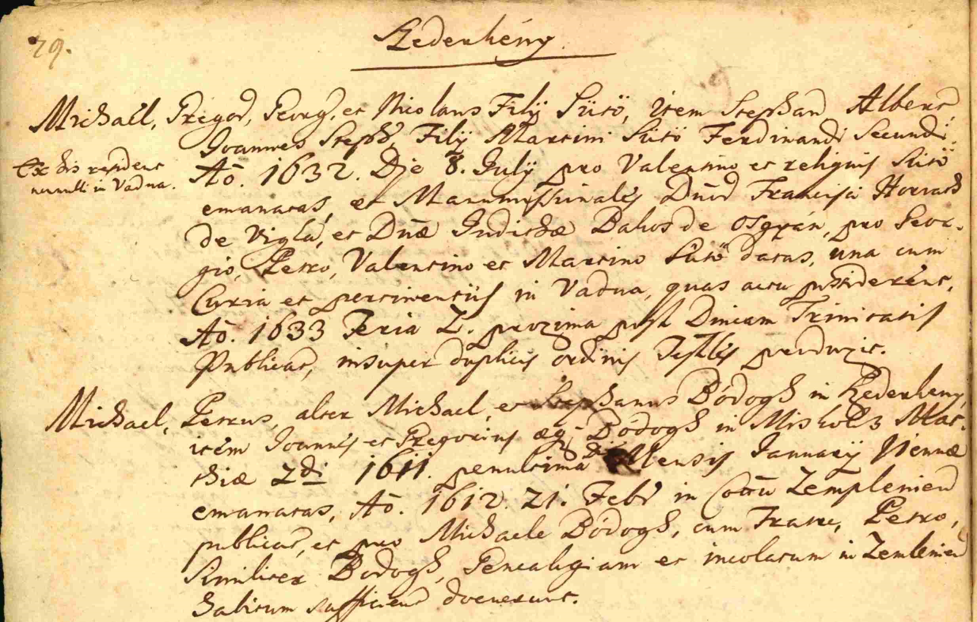 79.
Kederhény.
Michaël, Gregor, Georg, et Nicolaus Filÿ Sütö, item Stephan Albert,
Joannes Steph, Filÿ Martini Sütö Ferdinandi Secundi
Ex his resident
nonnulli in Vadna.
Aō. 1632. Die 8. Julÿ pro Valentino et reliquis Sütö
emanatas, et Manuscriptionales Dnor Francisci Horvath
de Vigla, et Dnæ Judithæ Bakos de Osgyán, pro Geor-
gio, Petro, Valentino et Martino Sütö datas, una cum
Curia et pertinentiis in Vadna, quas actu possiderent,
Aō. 1633 Feria 2. proxima post Dincam Trinitatis
Publicat, insuper duplicis ordinis Testes produxit.
Michaël, Petrus, alter Michael, et Stephanus Bodogh in Kederheny
item Joannes et Gregorius æq Bodogh in Miskolcz Mat-
thiæ 2di 1611. penultima Mensis Januarÿ Viennæ
emanatas, Aō. 1612. 21. Febr in Cottu Zemplenien
publicat, et pro Michaele Bodogh, cum Franc, Petro,
similiter Bodogh, Genealogiam et incolatum in Zemlenien
habitum sufficient docuerunt.